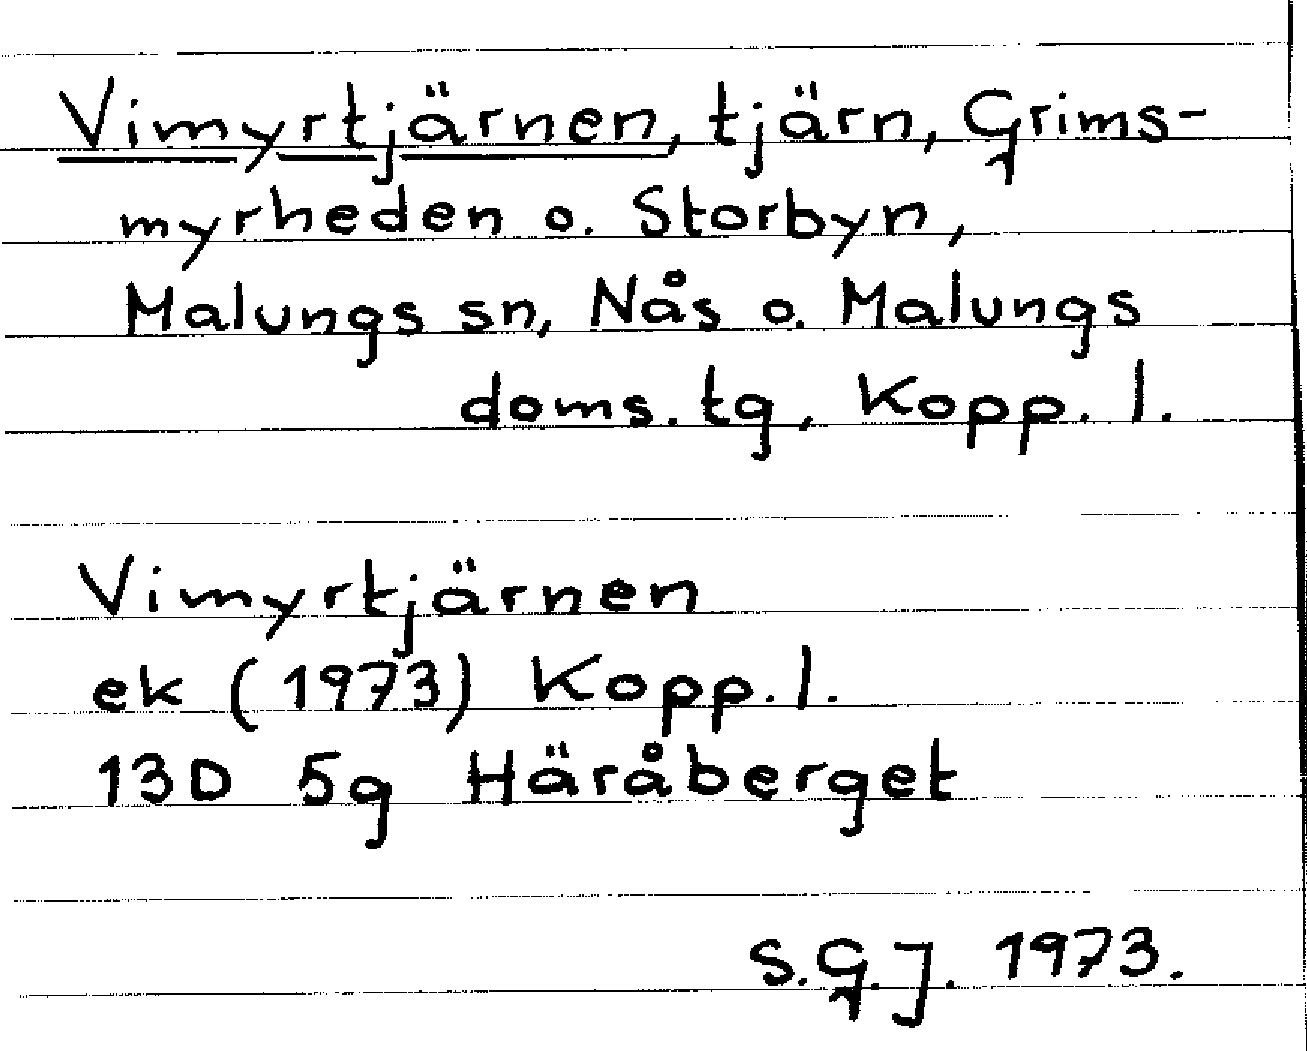 Vimyrtjärnen, tjärn, Grims-
myrheden o. Storbyn,
Malungs sn, Nås o. Malungs
doms. tg, Kopp. l.
Vimyrtjärnen
ek (1973) Kopp. l.
13D 5g Häråberget
S.G.J. 1973.